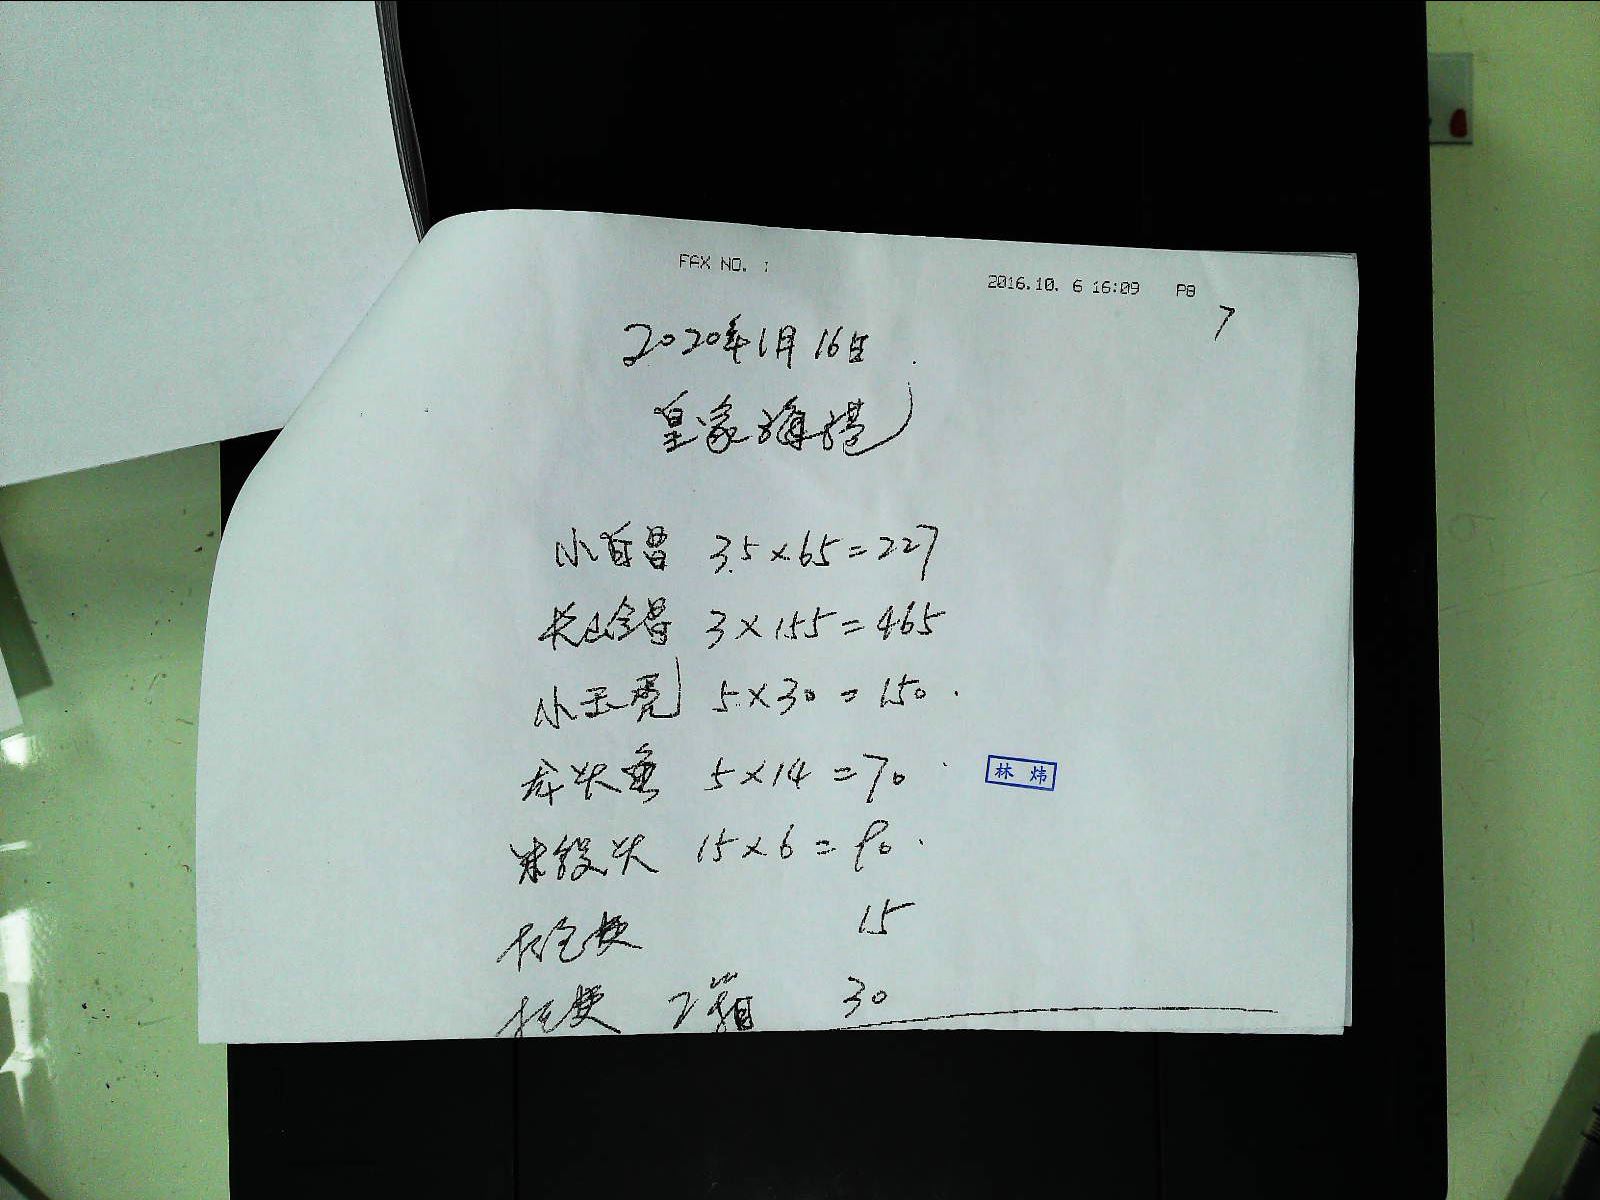 FAX NO. :
2016.10. 6 16:09 P8
7
2020年1月16日
皇家海港
小白昌 3.5×65=227
长山金昌 3×155=465
小玉秃 5×30=150
龙头鱼 5×14=70
林炜
15×6=90
15
2箱 30